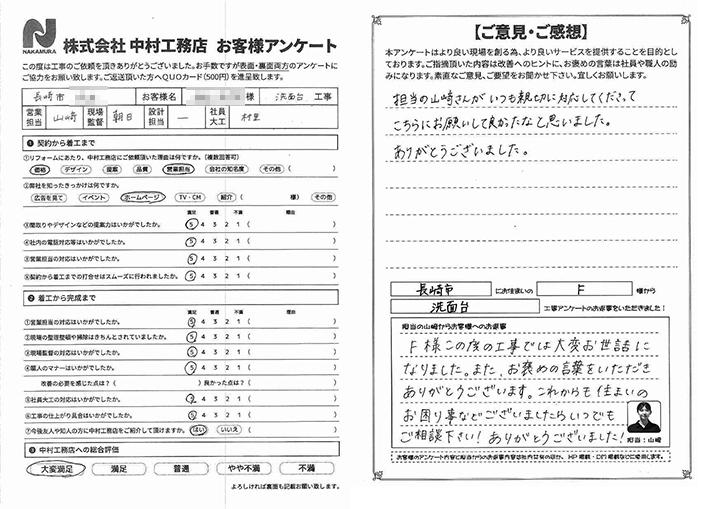 NAKAMURA
株式会社 中村工務店 お客様アンケート
この度は工事のご依頼を頂きありがとうございました。お手数ですが表面・裏面両方のアンケートに
ご協力をお願い致します。ご返送頂いた方へQUOカード(500円)を進呈致します。
長崎市 お客様名 様 洗面台 工事
営業担当 山崎 現場監督 朝日 設計担当 ー 社員大工 村里
❶ 契約から着工まで
①リフォームにあたり、中村工務店にご依頼頂いた理由は何ですか。(複数回答可)
価格 デザイン 提案 品質 営業担当 会社の知名度 その他( )
②弊社を知ったきっかけは何ですか。
広告を見て イベント ホームページ TV・CM 紹介( 様) その他
満足 普通 不満 理由
③間取りやデザインなどの提案力はいかがでしたか。 5 4 3 2 1 ( )
④社内の電話対応等はいかがでしたか。 5 4 3 2 1 ( )
⑤営業担当の対応はいかがでしたか。 5 4 3 2 1 ( )
⑥契約から着工までの打合せはスムーズに行われましたか。 5 4 3 2 1 ( )
❷ 着工から完成まで
満足 普通 不満 理由
①営業担当の対応はいかがでしたか。 5 4 3 2 1 ( )
②現場の整理整頓や掃除はきちんとされていましたか。 5 4 3 2 1 ( )
③現場監督の対応はいかがでしたか。 5 4 3 2 1 ( )
④職人のマナーはいかがでしたか。 5 4 3 2 1 ( )
改善の必要を感じた点は?( ) 良かった点は?( )
⑤社員大工の対応はいかがでしたか。 5 4 3 2 1 ( )
⑥工事の仕上がり具合はいかがでしたか。 5 4 3 2 1 ( )
⑦今後友人や知人の方に中村工務店をご紹介して頂けますか。 はい いいえ ( )
❸ 中村工務店への総合評価
大変満足 満足 普通 やや不満 不満
よろしければ裏面も記載お願い致します。
【ご意見・ご感想】
本アンケートはより良い現場を創る為、より良いサービスを提供することを目的とし
ております。ご指摘頂いた内容は改善へのヒントに、お褒めの言葉は社員や職人の励
みになります。素直なご意見、ご要望をお聞かせ下さい。宜しくお願いします。
担当の山崎さんがいつも親切に対応してくださって
こちらにお願いして良かったなと思いました。
ありがとうございました。
長崎市 にお住まいの F 様から
洗面台 工事アンケートのお返事をいただきました!
担当の山崎からお客様へのお返事
F様この度の工事では大変お世話に
なりました。また、お褒めの言葉をいただき
ありがとうございます。これからも住まいの
お困り事などございましたらいつでも
ご相談下さい!ありがとうございました! 担当:山崎